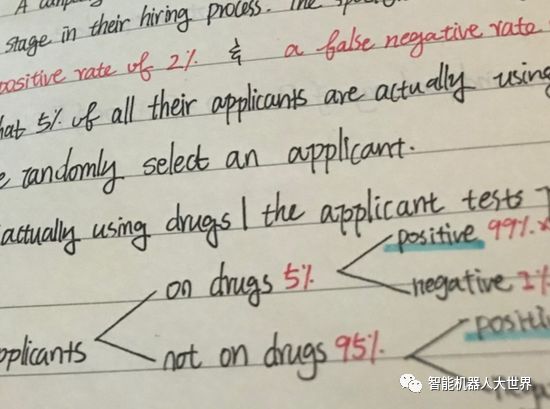 A
stage in their hiring process. The
positive rate of 2% & a false negative rate
that 5% of all their applicants are actually using
randomly select an applicant.
actually using drugs | the applicant tests
on drugs 5% positive 99%
negative 1%
applicants
not on drugs 95%
智能机器人大世界